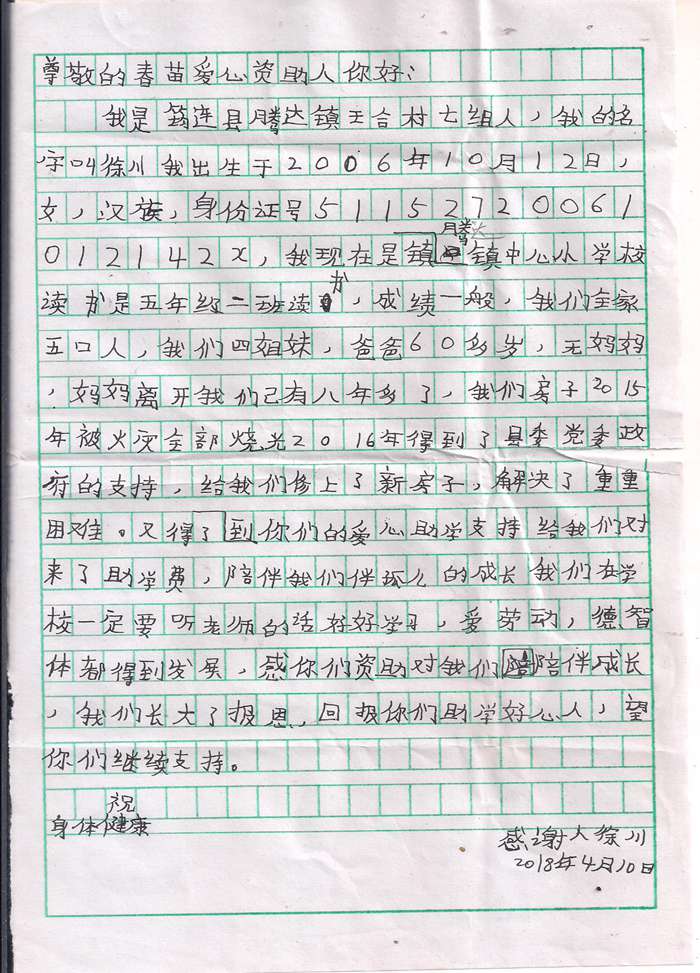 尊敬的春苗爱心资助人你好:
我是筠连县腾达镇王合村七组人,我的名
字叫徐川我出生于2006年10月12日,
女,汉族,身份证号51152720061
012142X,我现在是镇腾达镇中心小学校
读书是五年级二班读书,成绩一般,我们全家
五口人,我们四姐妹,爸爸60多岁,无妈妈
,妈妈离开我们已有八年多了,我们房子2015
年被火灾全部烧光2016年得到了县委党委政
府的支持,给我们修上了新房子,解决了重重
困难。又得了到你们的爱心助学支持给我们对
来了助学费,陪伴我们伴孤儿的成长我们在学
校一定要听老师的话好好学习,爱劳动,德智
体都得到发展,感你们资助对我们陪伴成长
,我们长大了报恩,回报你们助学好心人,望
你们继续支持。
祝
身体健康
感谢人徐川
2018年4月10日